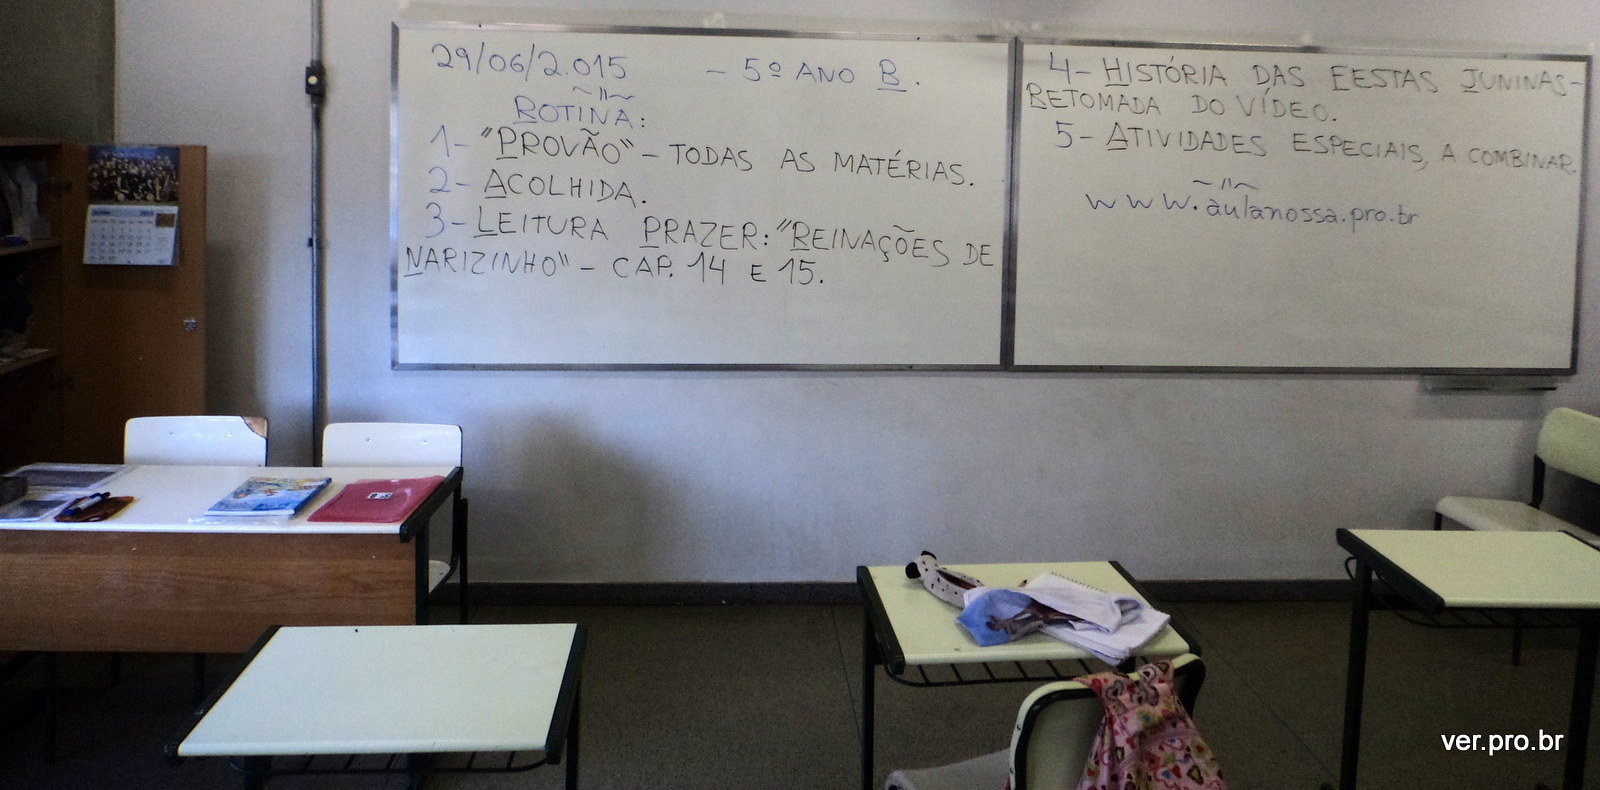 29/06/2.015 - 5º ANO B.
ROTINA:
1- "PROVÃO" - TODAS AS MATÉRIAS.
2- ACOLHIDA.
3- LEITURA PRAZER: "REINAÇÕES DE
NARIZINHO" - CAP. 14 E 15.
4- HISTÓRIA DAS FESTAS JUNINAS-
RETOMADA DO VÍDEO.
5- ATIVIDADES ESPECIAIS, A COMBINAR.
www.aulanossa.pro.br
Junho 2015
ver.pro.br